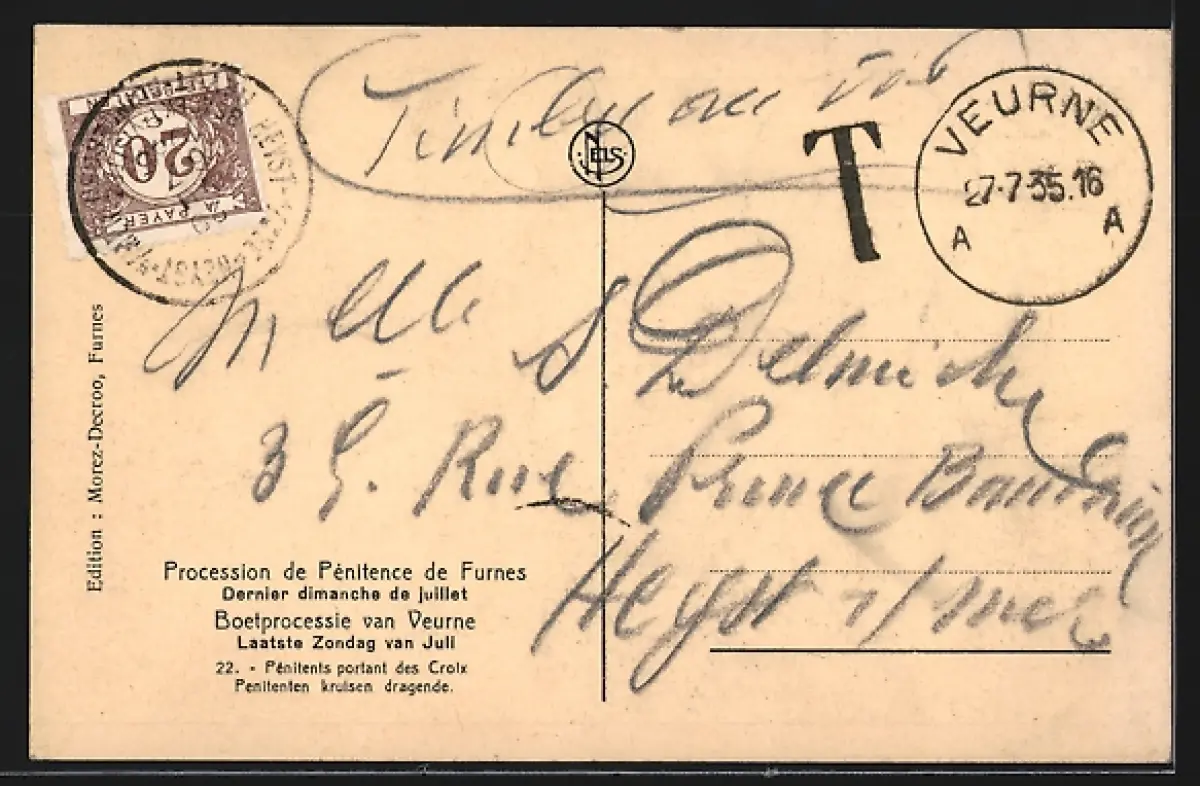 Timbre au dos
NELS
T
VEURNE
27-7-35.16
A A
20
À PAYER
HEYST
Mlle S Delmiche
35. Rue Prince Baudouin
Heyst s/mer
Edition : Morez-Decroo, Furnes
Procession de Pénitence de Furnes
Dernier dimanche de juillet
Boetprocessie van Veurne
Laatste Zondag van Juli
22. - Pénitents portant des Croix
Penitenten kruisen dragende.